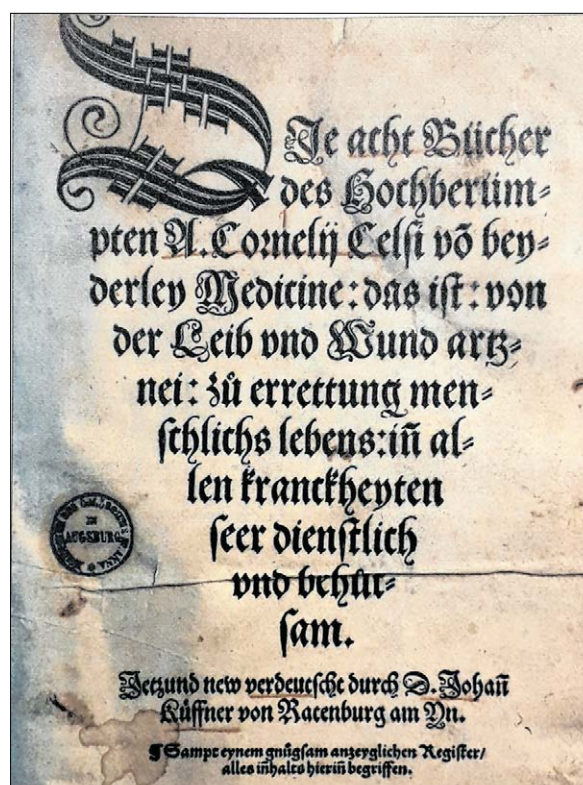 DJe acht Bücher
des Hochberüm⸗
pten A. Cornelij Celsi võ bey⸗
derley Medicine: das ist: von
der Leib vnd Wund artz⸗
nei: zů errettung men⸗
schlichs lebens: iñ al⸗
len kranckheyten
seer dienstlich
vnd behůt⸗
sam.
Jetzund new verdeutscht durch D. Johañ
Küffner von Ratenburg am Yn.
¶ Sampt eynem gnůgsam anzeyglichen Register/
alles iñhalts hieriñ begriffen.
IN
AUGSBURG